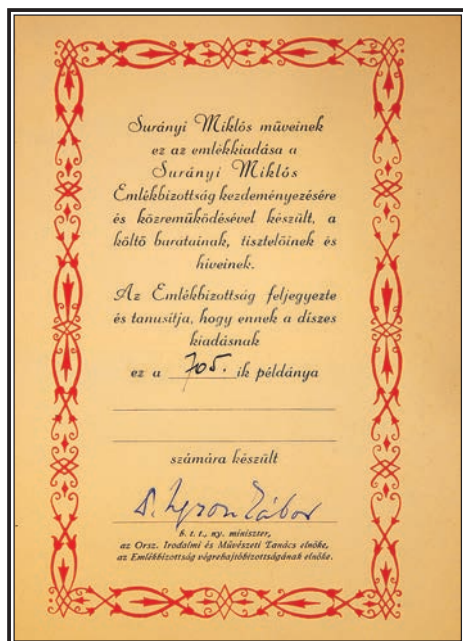 Surányi Miklós műveinek
ez az emlékkiadása a
Surányi Miklós
Emlékbizottság kezdeményezésére
és közreműködésével készült, a
költő barátainak, tisztelőinek és
híveinek.
Az Emlékbizottság feljegyezte
és tanusítja, hogy ennek a díszes
kiadásnak
ez a 705. ik példánya
számára készült
Tábor
b. t. t., ny. miniszter,
az Orsz. Irodalmi és Művészeti Tanács elnöke,
az Emlékbizottság végrehajtóbizottságának elnöke.